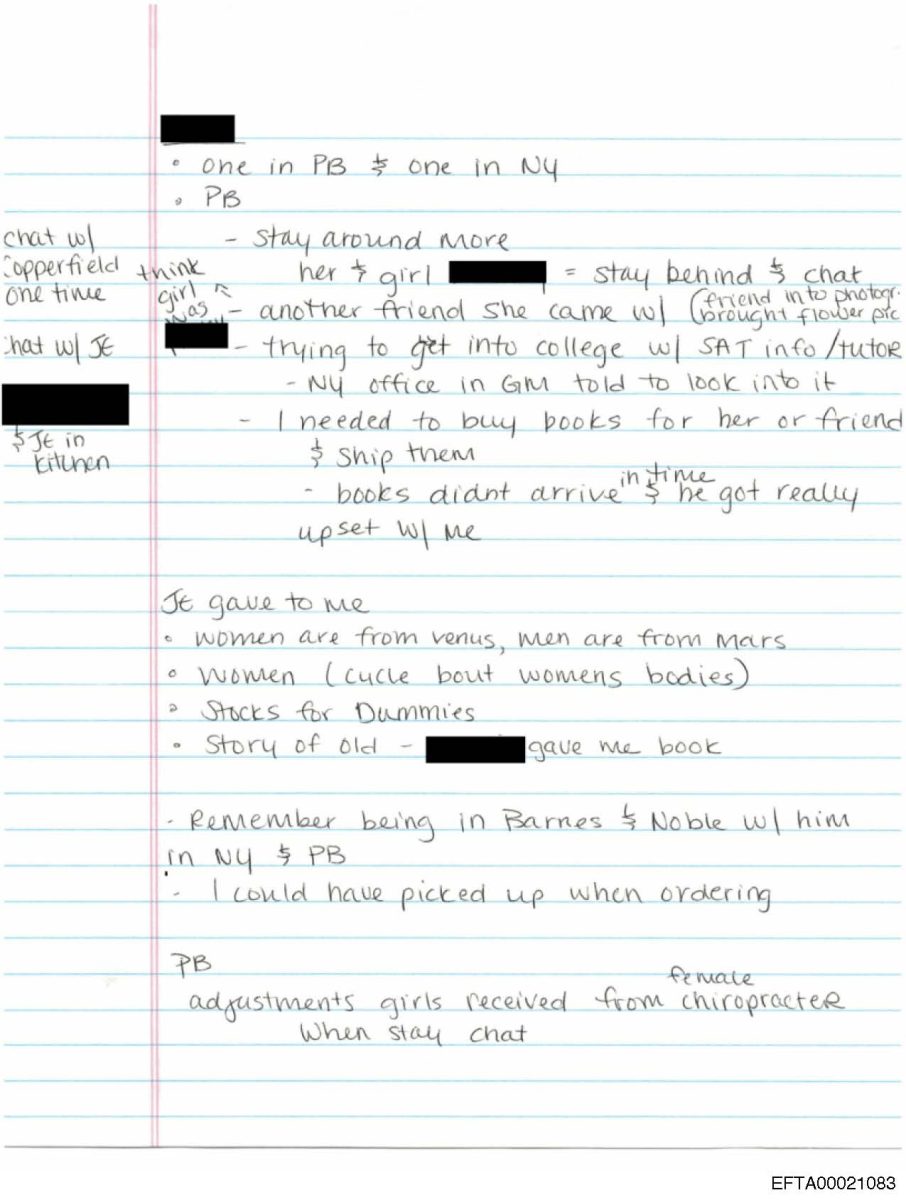 • one in PB & one in NY
• PB
- stay around more
her & girl = stay behind & chat
- another friend she came w/ (friend into photogr. brought flower pic
- trying to get into college w/ SAT info/tutor
- NY office in GM told to look into it
- I needed to buy books for her or friend
& ship them
- books didnt arrive in time & he got really
upset w/ me
chat w/
Copperfield
one time
think
girl
was
chat w/ JE
& JE in
kitchen
JE gave to me
• women are from venus, men are from mars
• women (cycle bout womens bodies)
• Stocks for Dummies
• Story of old - gave me book
- Remember being in Barnes & Noble w/ him
in NY & PB
- I could have picked up when ordering
PB
adjustments girls received from female chiropracter
when stay chat
EFTA00021083